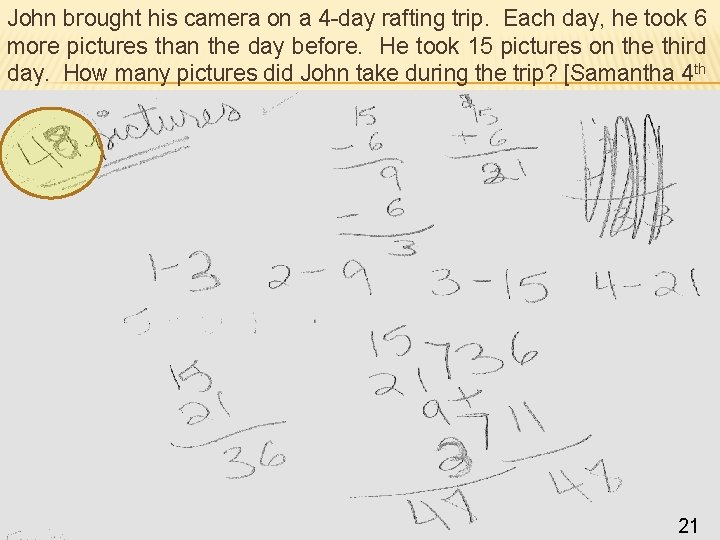 John brought his camera on a 4-day rafting trip. Each day, he took 6
more pictures than the day before. He took 15 pictures on the third
day. How many pictures did John take during the trip? [Samantha 4th
48 pictures
15
- 6
9
- 6
3
15
+ 6
21
1-3 2-9 3-15 4-21
15
21
36
15
21
36
9 +
3
11
48
48
21